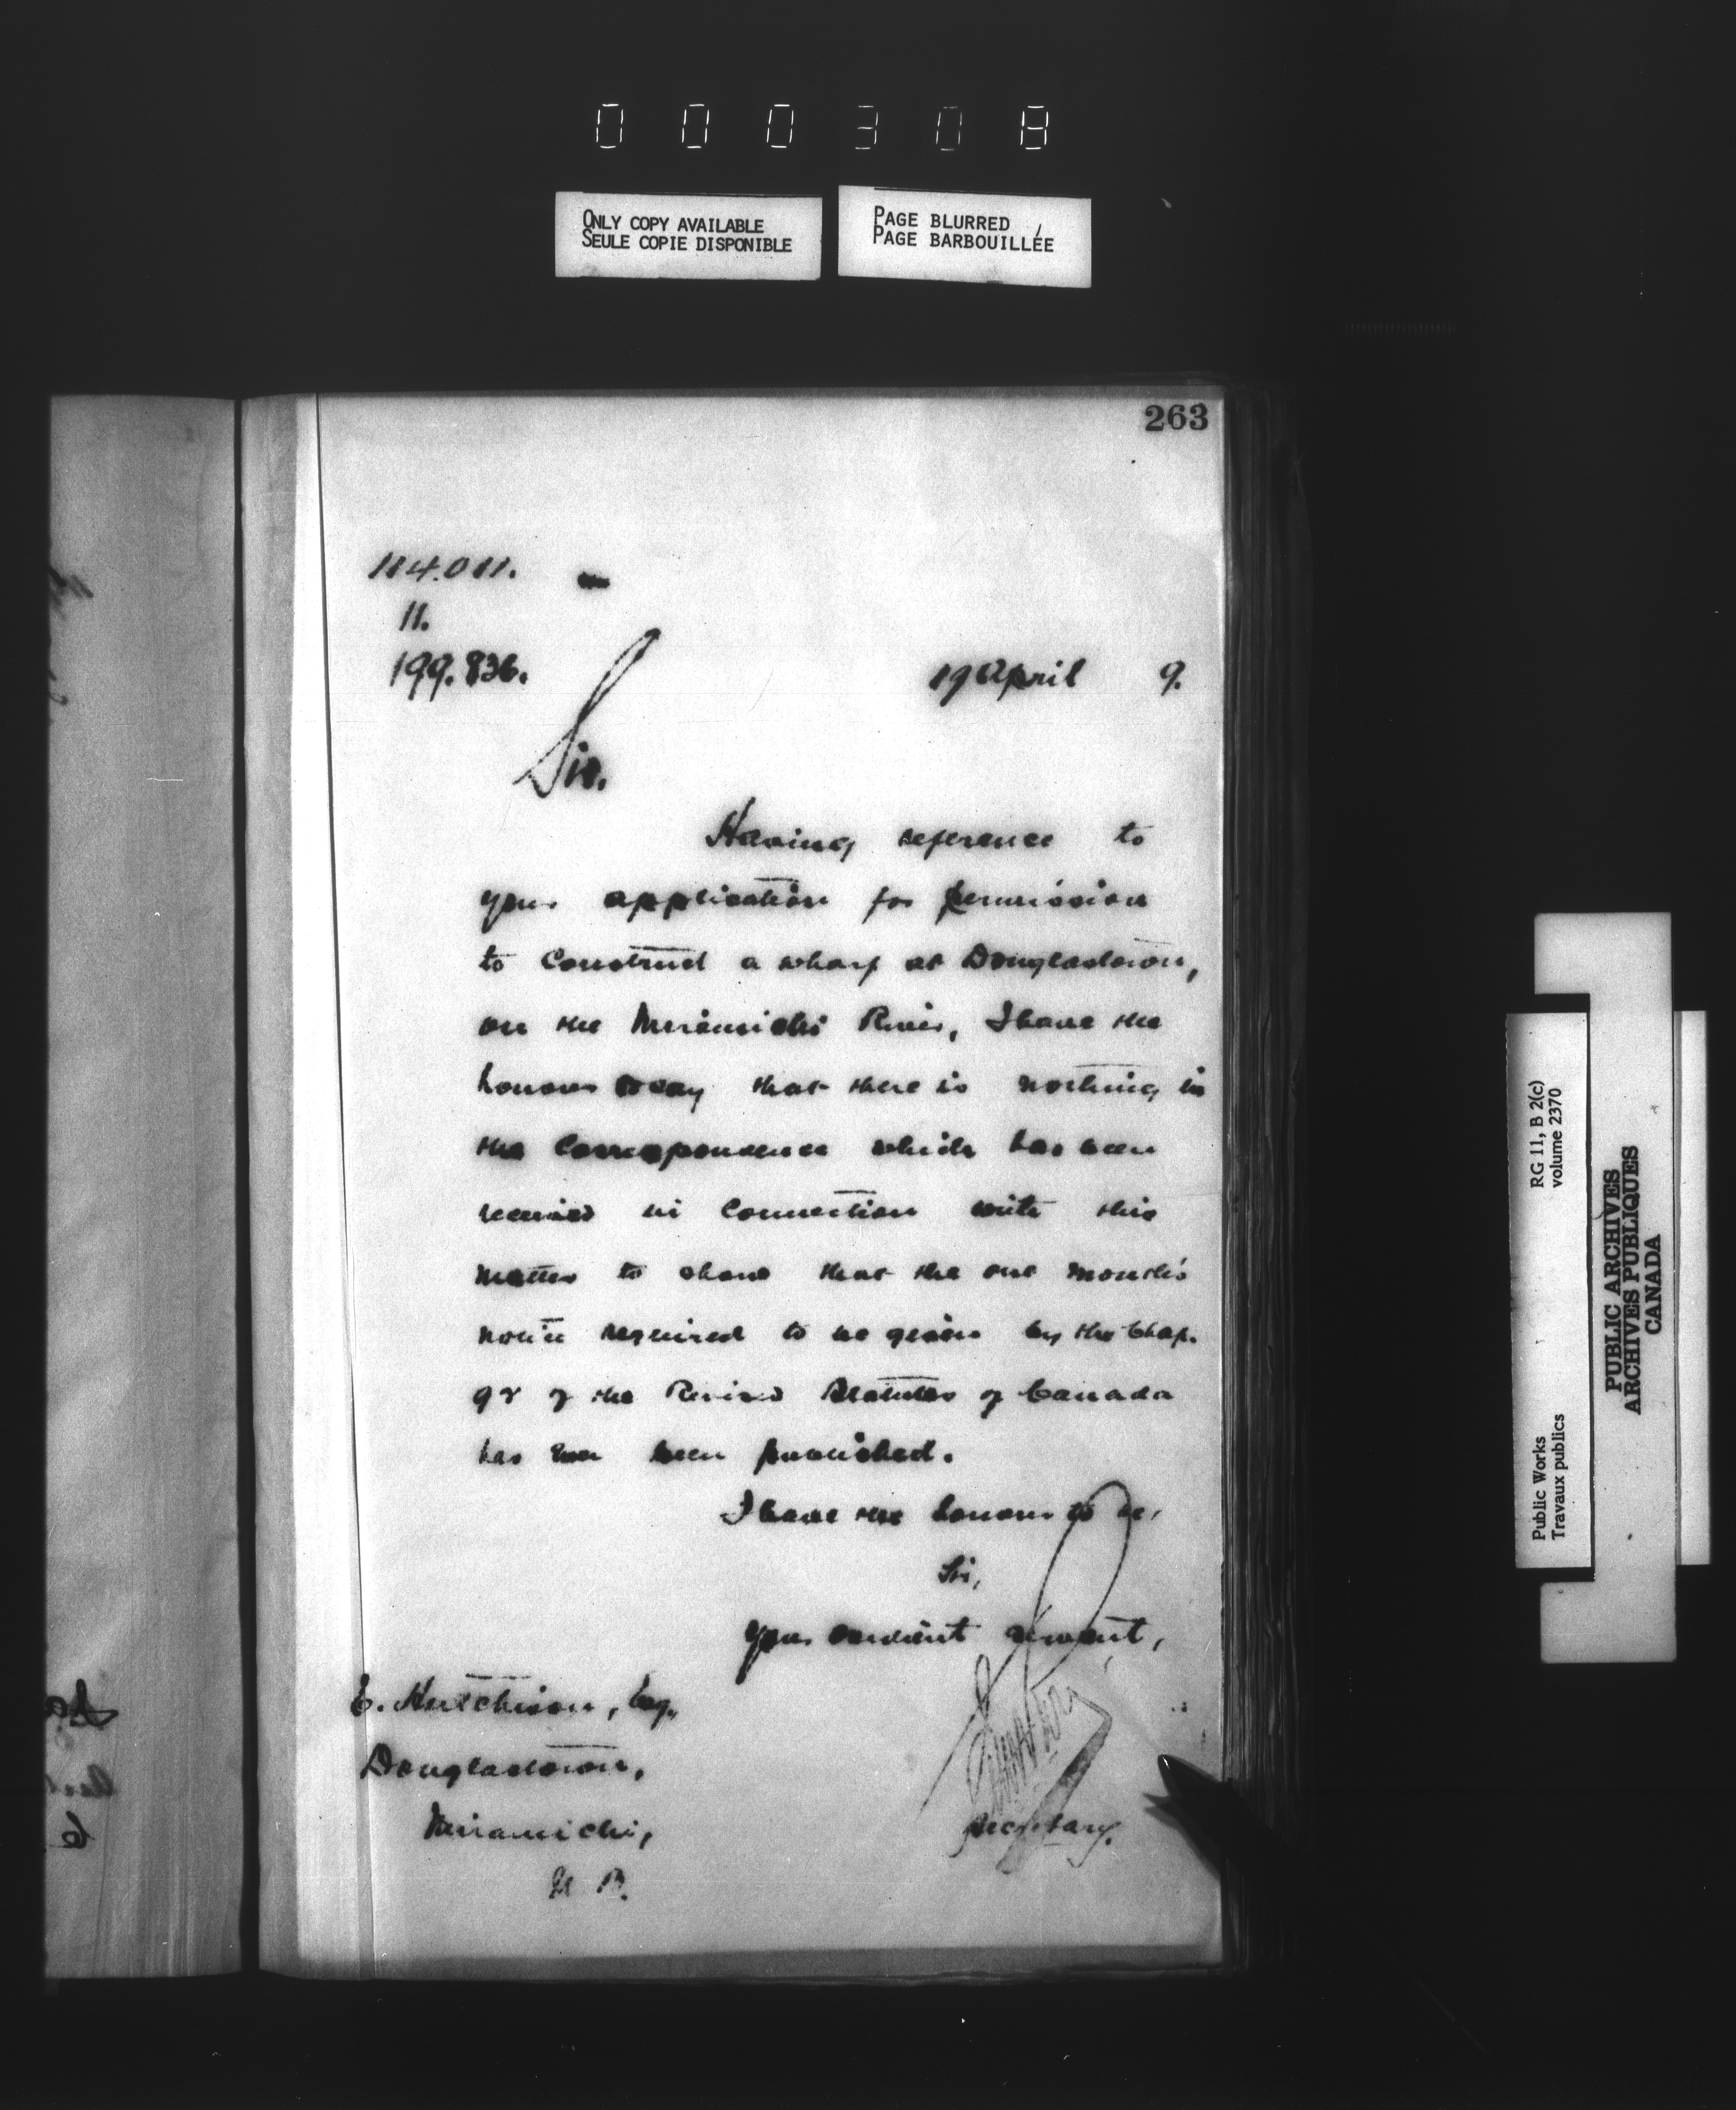 000308
ONLY COPY AVAILABLE
SEULE COPIE DISPONIBLE
PAGE BLURRED
PAGE BARBOUILLÉE
263
114.011.
11.
199.836.
19 April 9.
Sir.
Having reference to
your application for permission
to Construct a wharf at Douglastown,
on the Miramichi River, I have the
honour to say that there is nothing in
the Correspondence which has been
received in Connection with this
matter to show that the one month's
notice required to be given by the Chap.
92 of the Revised Statutes of Canada
has been published.
I have the honour to be,
Sir,
Your obedient servant,
E. Hutchison, Esq.,
Douglastown,
Miramichi,
N. B.
Secretary.
Public Works
Travaux publics
RG 11, B 2(c)
volume 2370
PUBLIC ARCHIVES
ARCHIVES PUBLIQUES
CANADA